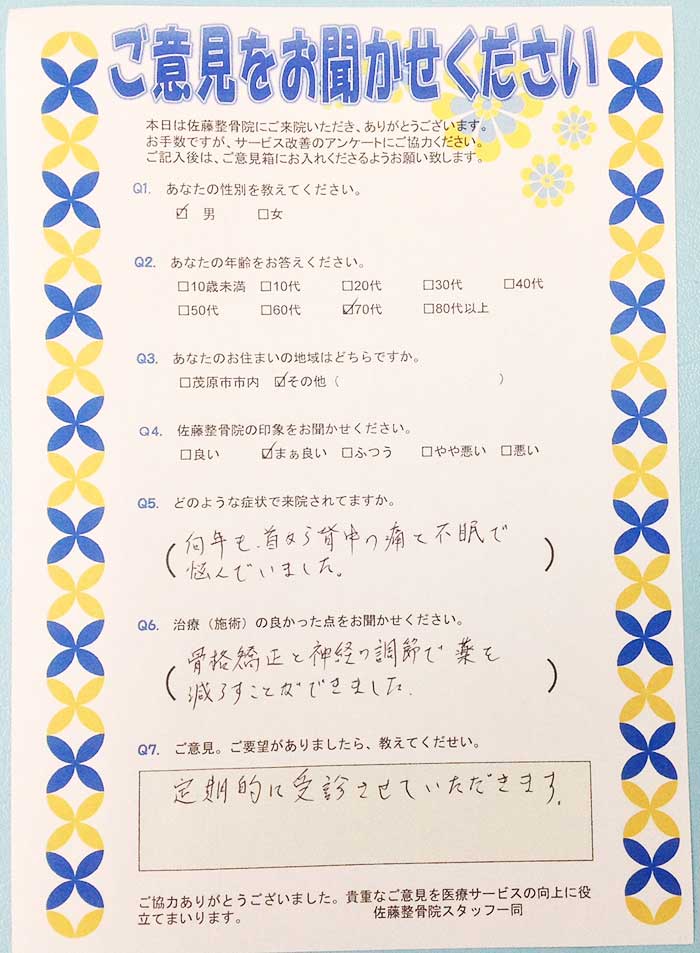 ご意見をお聞かせください
本日は佐藤整骨院にご来院いただき、ありがとうございます。
お手数ですが、サービス改善のアンケートにご協力ください。
ご記入後は、ご意見箱にお入れくださるようお願い致します。
Q1. あなたの性別を教えてください。
☑ 男 □女
Q2. あなたの年齢をお答えください。
□10歳未満 □10代 □20代 □30代 □40代
□50代 □60代 ☑70代 □80代以上
Q3. あなたのお住まいの地域はどちらですか。
□茂原市市内 ☑その他（ ）
Q4. 佐藤整骨院の印象をお聞かせください。
□良い ☑まぁ良い □ふつう □やや悪い □悪い
Q5. どのような症状で来院されてますか。
(何年も、首から背中の痛と不眠で
悩んでいました。)
Q6. 治療（施術）の良かった点をお聞かせください。
(骨格矯正と神経の調節で薬を
減らすことができました.)
Q7. ご意見。ご要望がありましたら、教えてくだせい。
定期的に受診させていただきます.
ご協力ありがとうございました。貴重なご意見を医療サービスの向上に役
立てまいります。 佐藤整骨院スタッフ一同